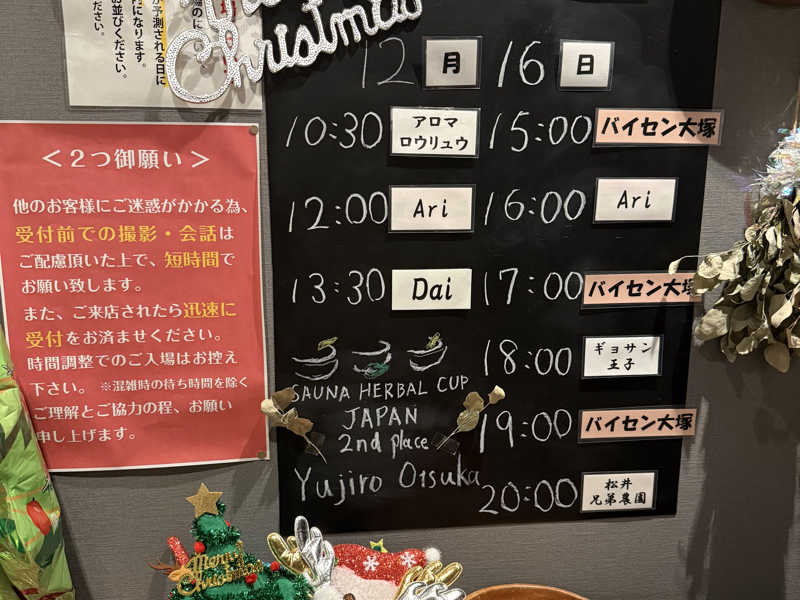 が予測される日に
内になります。
お並びください。
ください。
Christmas
12月 16日
10:30 アロマ
ロウリュウ
12:00 Ari
13:30 Dai
15:00 バイセン大塚
16:00 Ari
17:00 バイセン大塚
18:00 ギョサン
王子
19:00 バイセン大塚
20:00 松井
兄弟農園
SAUNA HERBAL CUP
JAPAN
2nd place
Yujiro Otsuka
＜２つ御願い＞
他のお客様にご迷惑がかかる為、
受付前での撮影・会話は
ご配慮頂いた上で、短時間で
お願い致します。
また、ご来店されたら迅速に
受付をお済ませください。
時間調整でのご入場はお控え
下さい。 ※混雑時の待ち時間を除く
ご理解とご協力の程、お願い
申し上げます。
Merry
Christmas